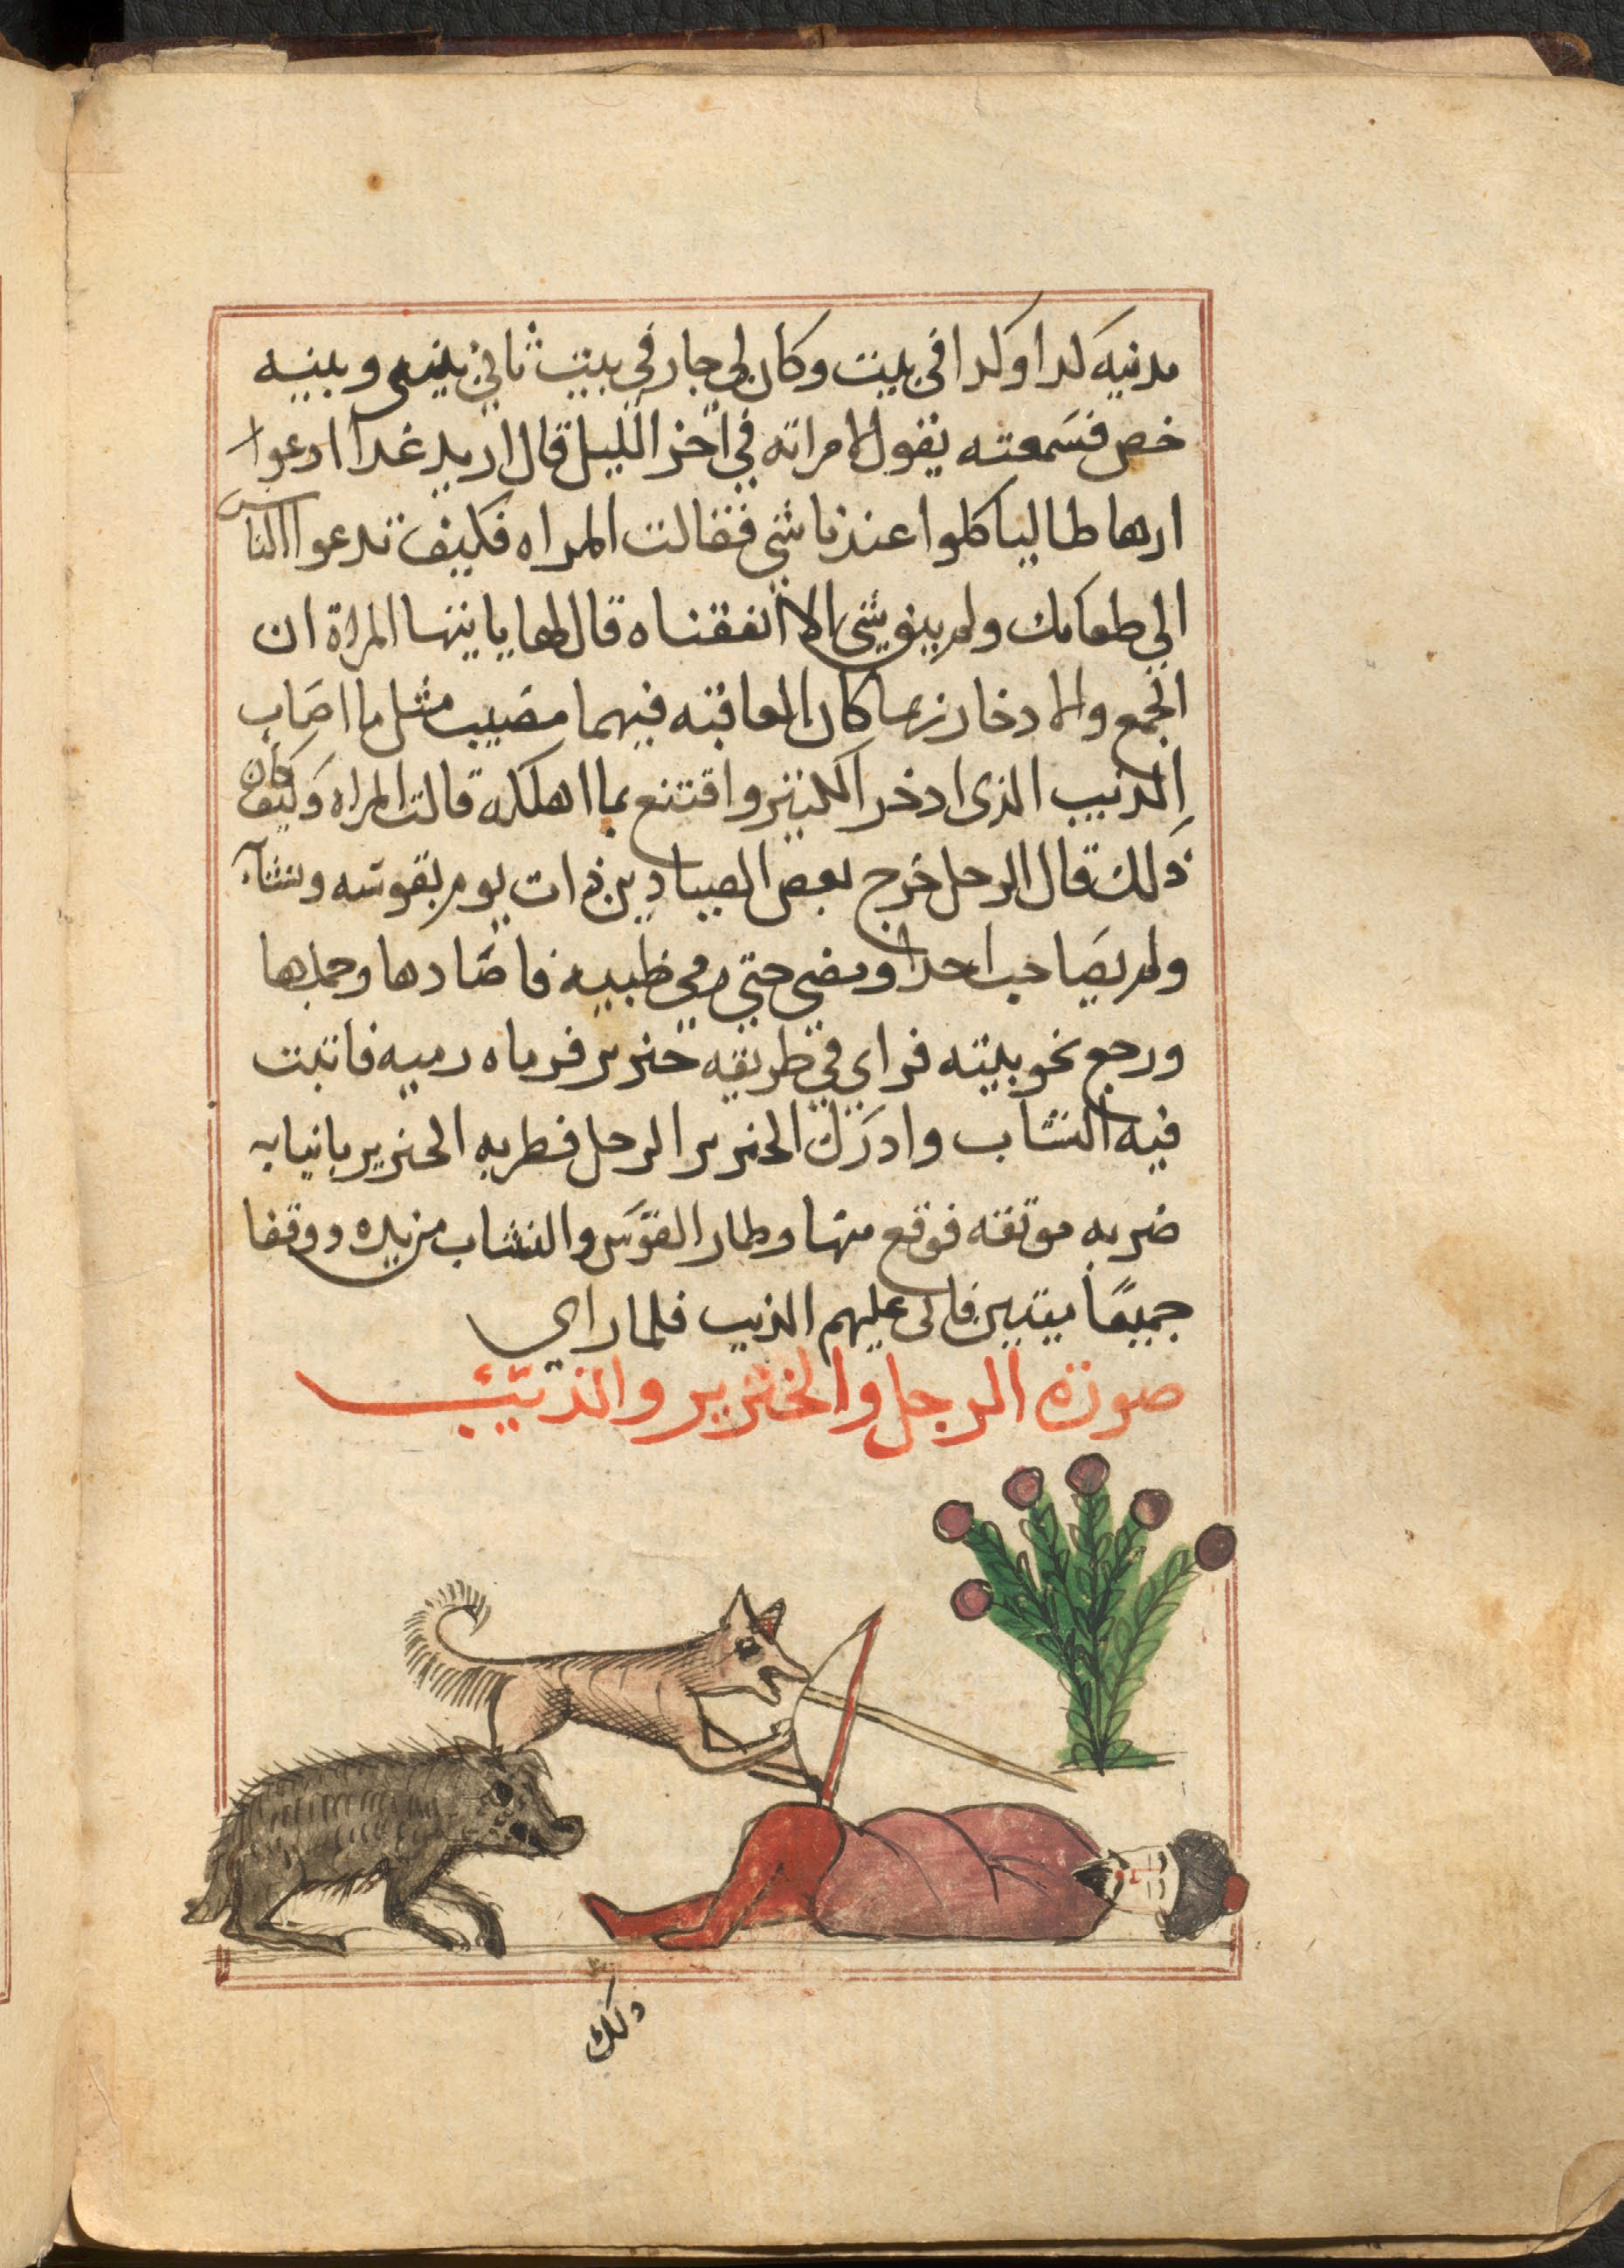 مدنية كذا وكذا في بيت وكان لي جار في بيت ثاني بيني وبينه
خص فسمعته يقول لامراته في اخر الليل قال اريد غدا ادعوا
ارهاطا لياكلوا عندنا شي فقالت المراه فكيف تدعوا الناس
الي طعامك ولم يبق شي الا انفقناه قال لها يا ايتها المراة ان
الجمع والادخار ربما كان العاقبته فيهما مصيب مثل ما اصاب
الذيب الذي ادخر الكنيز واقتنع بما اهلكه قالت المراه وكيف كان
ذلك قال الرجل خرج بعض الصيادين ذات يوم بقوسه ونشابه
ولم يصاحب احدا ومضي حتي رمي ظبيه فاصادها وحملها
ورجع نحو بيته فراي في طريقه خنزير فرماه رميه فاثبت
فيه النشاب وادرك الخنزير الرجل فضربه الخنزير بانيابه
ضربه موثقه فوقع منها وطار القوس والنشاب من يده ووقفا
جميعًا ميتين فاتي عليهم الذيب فلما راي
صورة الرجل والخنزير والذئيب
ذلك